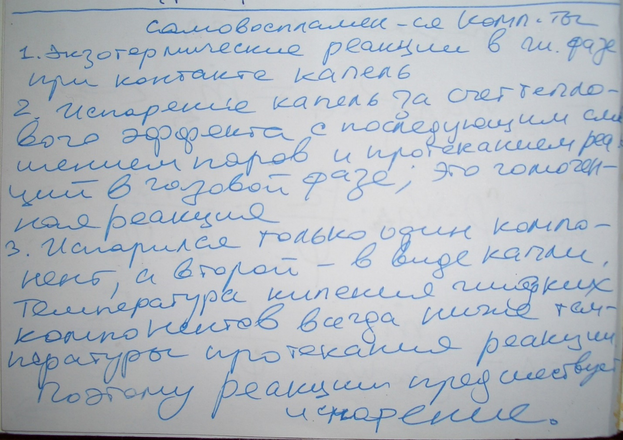 самовоспламен-ся комп-ты
1. Экзотермические реакции в ж. фазе
при контакте капель
2. Испарение капель за счет тепло-
вого эффекта с последующим сме
шением паров и протеканием реа
ций в газовой фазе; это гомоген-
ная реакция
3. Испарился только один компо-
нент, а второй – в виде капли.
Температура кипения жидких
компонентов всегда ниже тем-
пературы протекания реакции
Поэтому реакции предшествует
испарение.